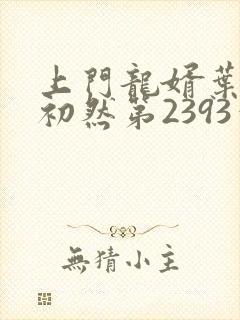 上門龍婿葉
初然第2393
無猜小主